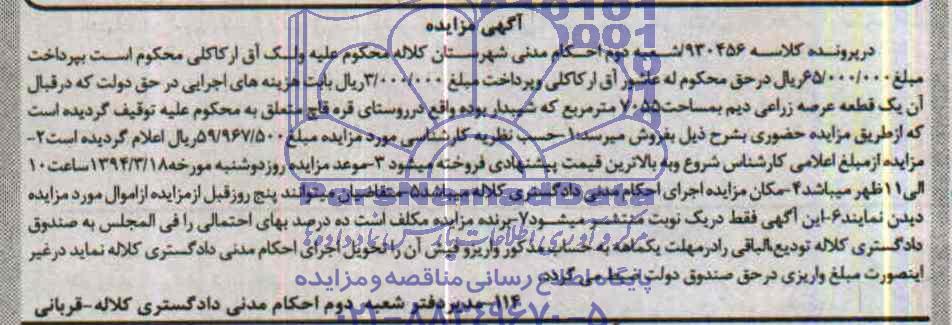 آگهی مزایده
درپرونده کلاسه ۹۳۰۴۵۶/شعبه دوم احکام مدنی شهرستان کلاله محکوم علیه ولک آق ارکاکلی محکوم است بپرداخت
مبلغ۶۵/۰۰۰/۰۰۰ریال درحق محکوم له عاشور آق ارکاکلی وپرداخت مبلغ ۳/۰۰۰/۰۰۰ریال بابت هزینه های اجرایی در حق دولت که درقبال
آن یک قطعه عرصه زراعی دیم بمساحت۷۰۵۵ مترمربع که شیبدار بوده واقع درروستای قره قاچ متعلق به محکوم علیه توقیف گردیده است
که ازطریق مزایده حضوری بشرح ذیل بفروش میرسد:۱-حسب نظریه کارشناسی مورد مزایده مبلغ ۵۹/۹۶۷/۵۰۰ریال اعلام گردیده است۲-
مزایده ازمبلغ اعلامی کارشناس شروع وبه بالاترین قیمت پیشنهادی فروخته میشود ۳-موعد مزایده روزدوشنبه مورخه۱۳۹۴/۳/۱۸ساعت۱۰
الی۱۱ظهر میباشد۴-مکان مزایده اجرای احکام مدنی دادگستری کلاله میباشد۵-متقاضیان میتوانند پنج روزقبل ازمزایده ازاموال مورد مزایده
دیدن نمایند۶-این آگهی فقط دریک نوبت منتشر میشود۷-برنده مزایده مکلف است ده درصد بهای احتمالی را فی المجلس به صندوق
دادگستری کلاله تودیع‌الباقی رادرمهلت یکماهه به حساب مذکور واریزو فیش آن راتحویل اجرای احکام مدنی دادگستری کلاله نماید درغیر
اینصورت مبلغ واریزی درحق صندوق دولت ضبط می گردد.
پایگاه اطلاع رسانی مناقصه و مزایده
۱۱۴-مدیردفتر شعبه دوم احکام مدنی دادگستری کلاله-قربانی
۰۲۱-۸۸۳۴۹۶۷۰-۵